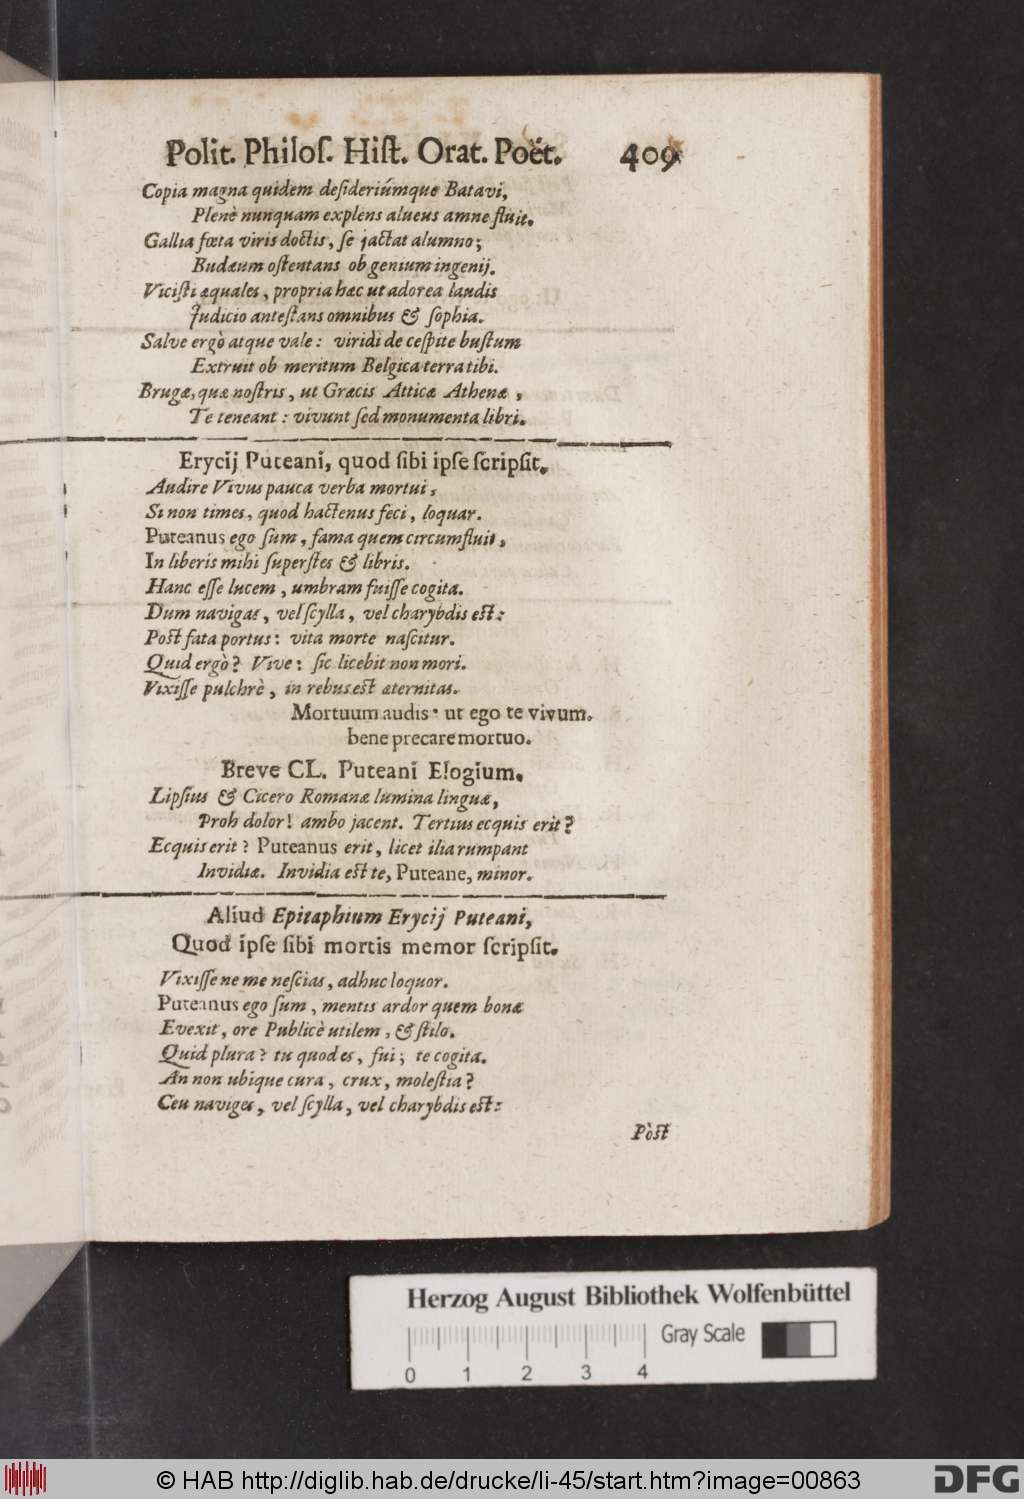 Polit. Philoſ. Hiſt. Orat. Poët. 409
Copia magna quidem deſideriúmque Batavi,
Plenè nunquam explens alueus amne fluit.
Gallia fœta viris doctis, ſe jactat alumno;
Budæum oſtentans ob genium ingenij.
Viciſti æquales, propria hæc ut adorea laudis
Judicio anteſtans omnibus & ſophia.
Salve ergò atque vale: viridi de ceſpite buſtum
Extruit ob meritum Belgica terra tibi.
Brugæ, quæ noſtris, ut Græcis Atticæ Athenæ,
Te teneant: vivunt ſed monumenta libri.
Erycij Puteani, quod ſibi ipſe ſcripſit.
Audire Vivus pauca verba mortui,
Si non times, quod hactenus feci, loquar.
Puteanus ego ſum, fama quem circumfluit,
In liberis mihi ſuperſtes & libris.
Hanc eſſe lucem, umbram fuiſſe cogita.
Dum navigas, vel ſcylla, vel charybdis eſt:
Poſt fata portus: vita morte naſcitur.
Quid ergò? Vive: ſic licebit non mori.
Vixiſſe pulchrè, in rebus eſt æternitas.
Mortuum audis: ut ego te vivum.
bene precare mortuo.
Breve CL. Puteani Elogium.
Lipſius & Cicero Romanæ lumina linguæ,
Proh dolor! ambo jacent. Tertius ecquis erit?
Ecquis erit? Puteanus erit, licet ilia rumpant
Invidiæ. Invidia eſt te, Puteane, minor.
Aliud Epitaphium Erycij Puteani,
Quod ipſe ſibi mortis memor ſcripſit.
Vixiſſe ne me neſcias, adhuc loquor.
Puteanus ego ſum, mentis ardor quem bonæ
Evexit, ore Publicè utilem, & ſtilo.
Quid plura? tu quod es, fui; te cogita.
An non ubique cura, crux, moleſtia?
Ceu naviges, vel ſcylla, vel charybdis eſt:
Pòſt
Herzog August Bibliothek Wolfenbüttel
Gray Scale
0 1 2 3 4
© HAB http://diglib.hab.de/drucke/li-45/start.htm?image=00863
DFG